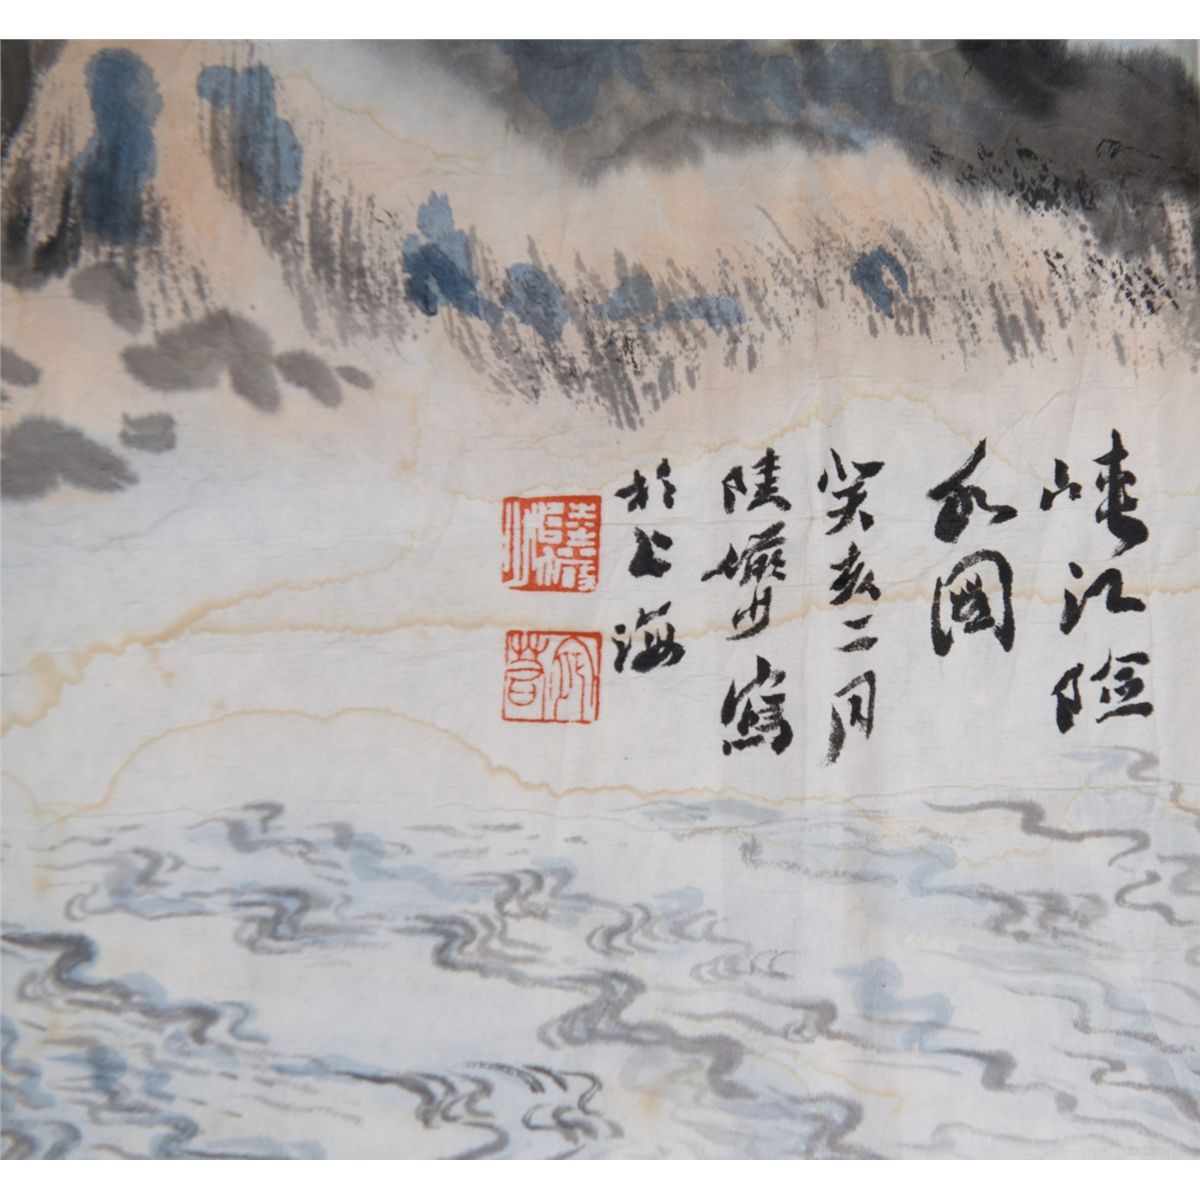 峡江险
水图
癸亥二月
陆俨少写
于上海